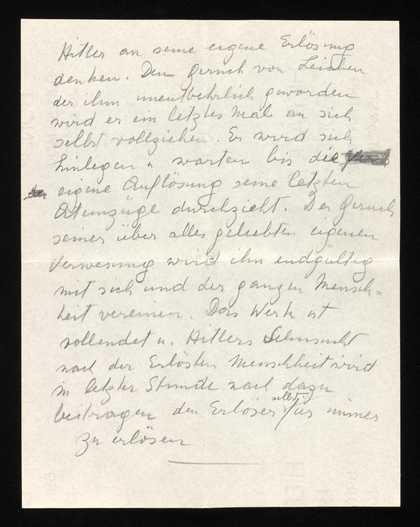 Hitler an seine eigene Erlösung
denken. Den Geruch von Leichen
der ihm unentbehrlich geworden
wird er ein letztes Mal an sich
selbst vollziehen. Er wird sich
hinlegen u warten bis die
eigene Auflösung seine letzten
Atemzüge durchzieht. Der Geruch
seiner über alles geliebten eigenen
Verwesung wird ihn endgültig
mit sich und der ganzen Mensch-
heit vereinen. Das Werk ist
vollendet u. Hitlers Sehnsucht
nach der Erlösten Menschheit wird
in letzter Stunde noch dazu
beitragen den Erlöser selbst für immer
zu erlösen